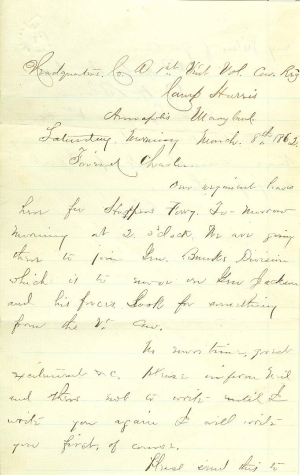 Headquarters Co. A 1st Vol. Cav. Reg
Camp Harris
Annapolis Maryland
Saturday Morning March. 8th 1862.
Friend Charles
Our regiment leaves
here for Harpers Ferry. To-morrow
morning at 2. o'clock. We are going
there to join Gen. Banks Division
which is to move on Gen Jackson
and his forces. Look for something
from the Cav.
No more time, great
excitement &c. Please inform
and them not to write until I
write you again I will write
you first, of course.
Please send this to